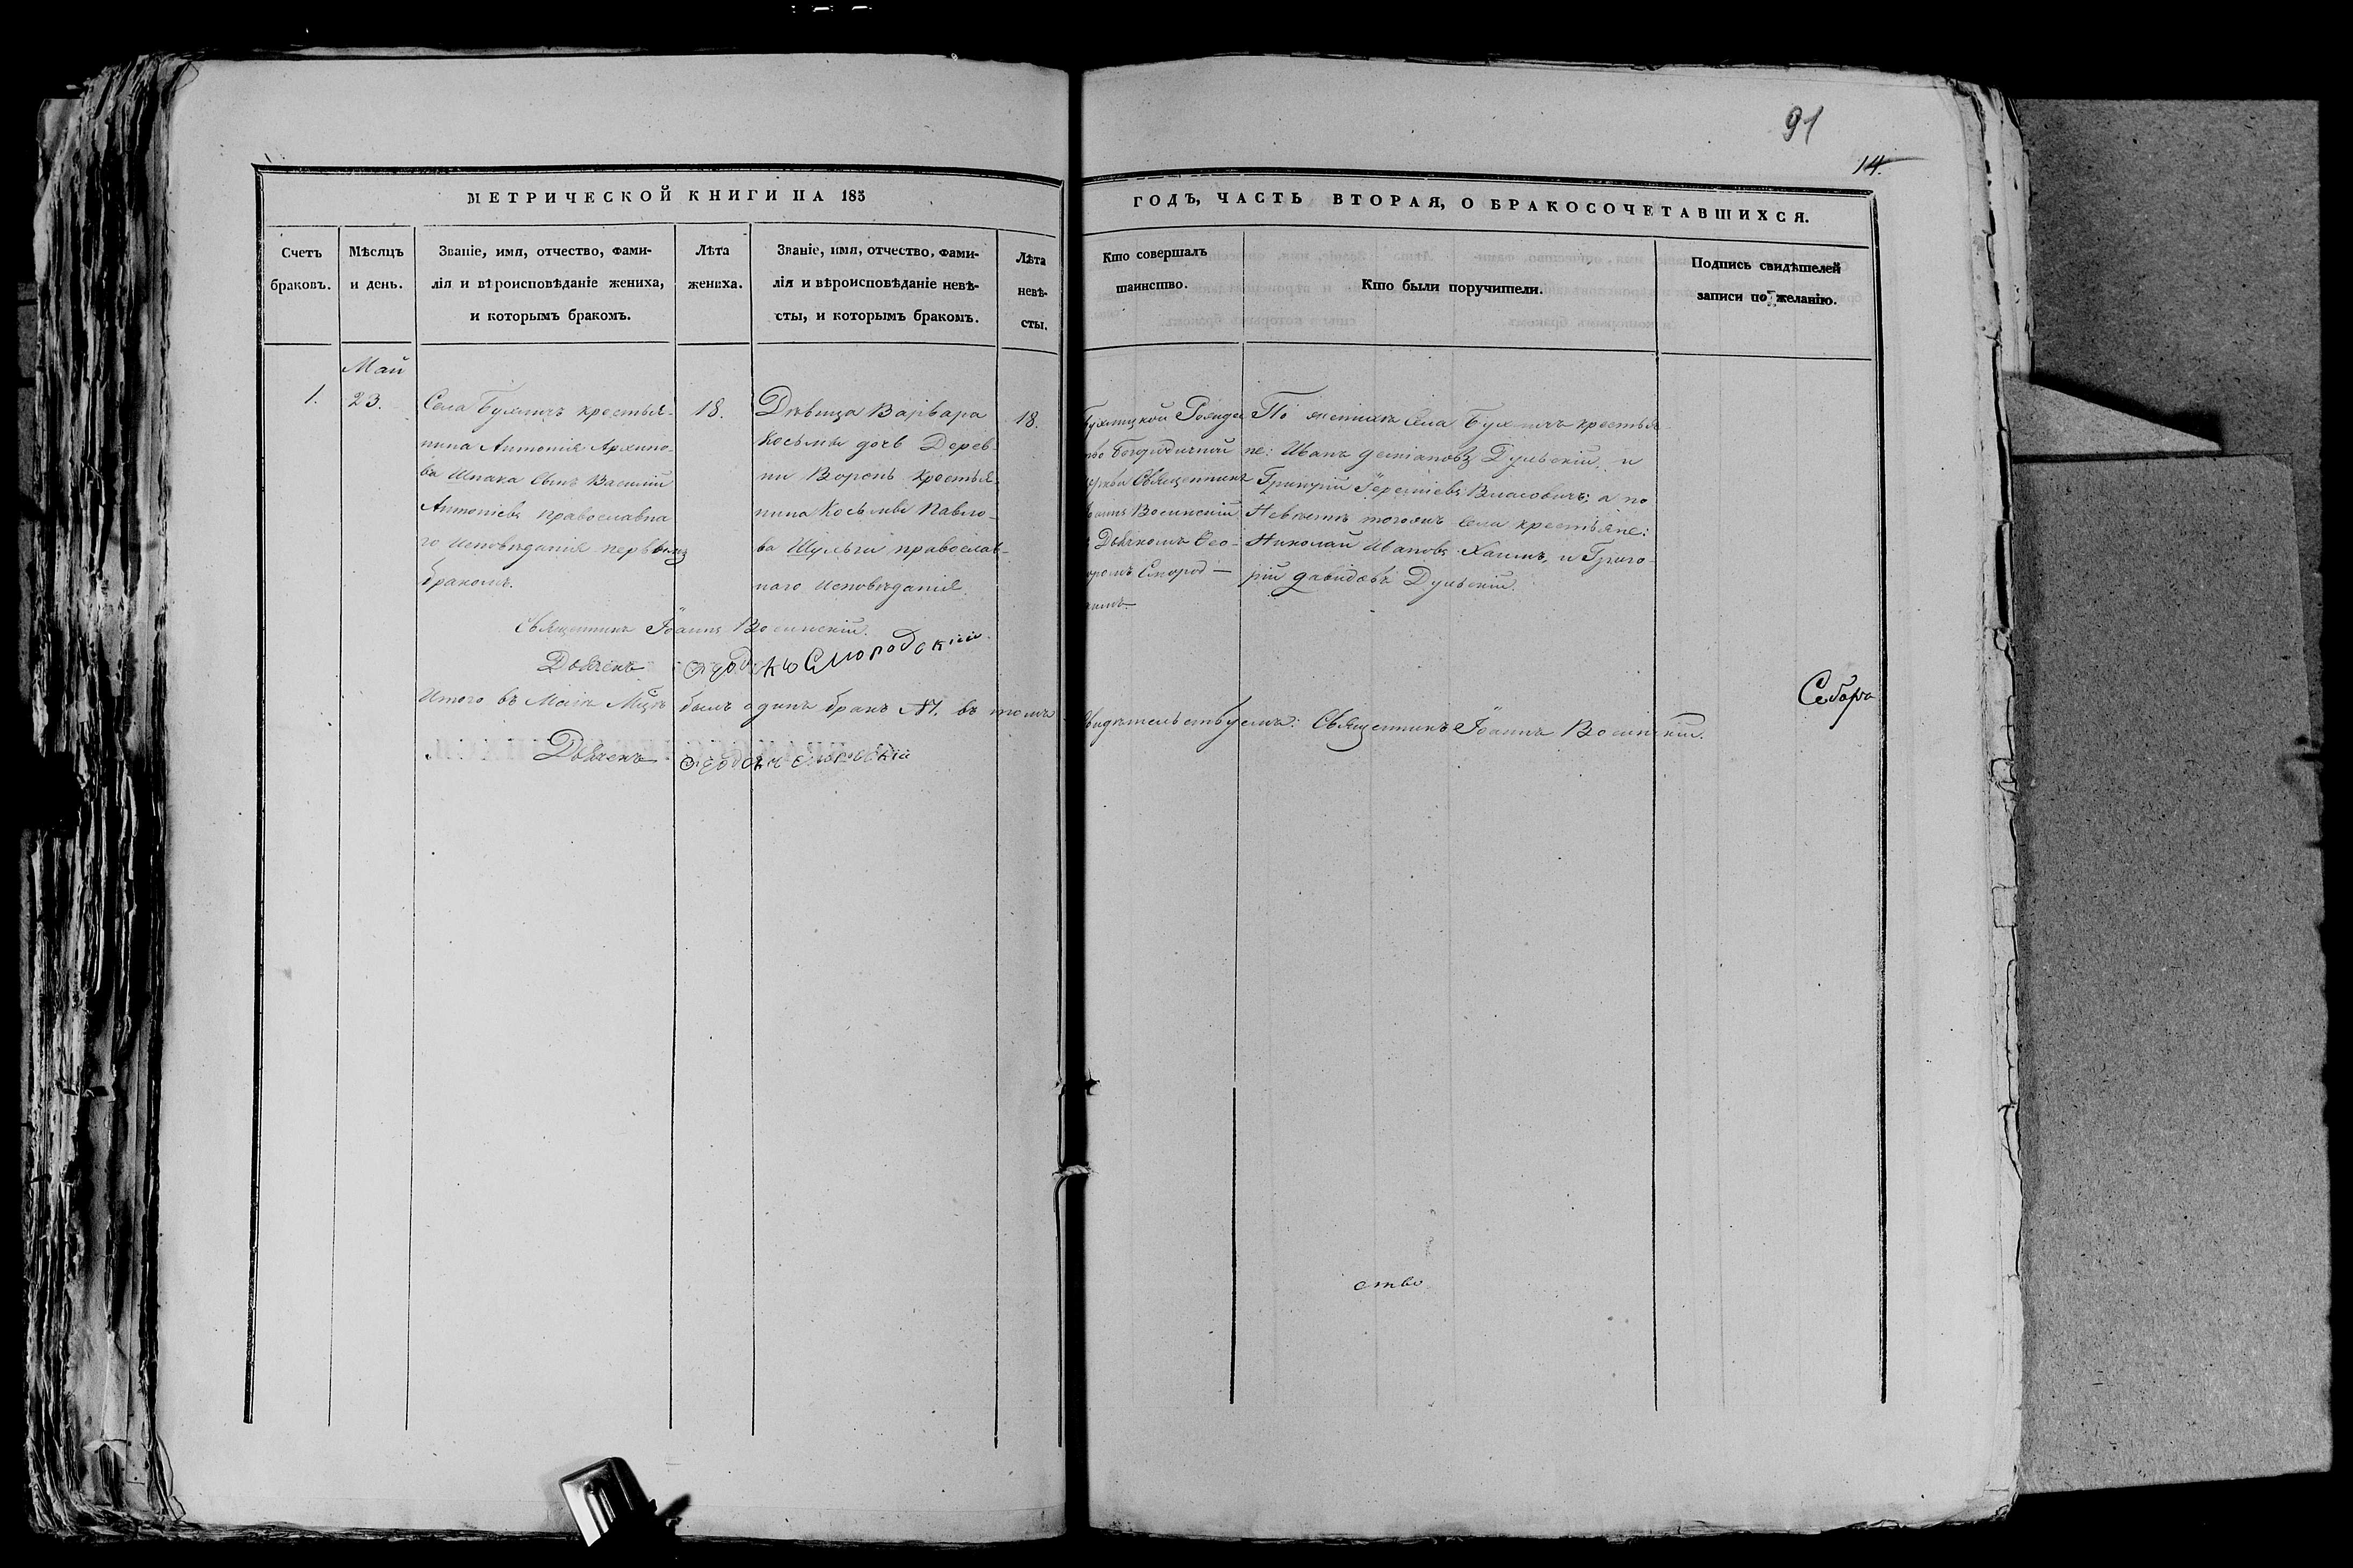 91
14.
МЕТРИЧЕСКОЙ КНИГИ НА 183
ГОДЪ, ЧАСТЬ ВТОРАЯ, О БРАКОСОЧЕТАВШИХСЯ.
Счетъ
браковъ.
Мѣсяцъ
и день.
Званіе, имя, отчество, фами-
лія и вѣроисповѣданіе жениха,
и которымъ бракомъ.
Лѣта
жениха.
Званіе, имя, отчество, фами-
лія и вѣроисповѣданіе невѣ-
сты, и которымъ бракомъ.
Лѣта
невѣ-
сты.
Кто совершалъ
таинство.
Кто были поручители.
Подпись свидѣтелей
записи по желанію.
1.
Май
23.
Села Бухличъ крестья-
нина Антонія Архипо-
ва Шпака сынъ Василій
Антоніевъ православна
го исповѣданія первымъ
бракомъ.
18.
Дѣвица Варвара
Косьмы дочь Дерев-
ни Воронь крестья-
нина Косьмы Павло-
ва Шульги православ-
наго исповѣданія.
18.
Бухлицкой Рожде
тво Богородичной
церкви Священникъ
Іоаннъ Восинскій
Дьячкомъ Ѳео-
Смород-
По женихѣ села Бухличъ крестья-
не: Иванъ Деміановъ Дульскій, и
Григорій Власовичъ; а по
Невѣстѣ тогожъ села крестьяне:
Николай Ивановъ Хаимъ, и Григо-
рій Давидовъ Дульскій.
Священникъ Іоаннъ Восинскій.
Дьячекъ Смородскій.
Итого въ Маіѣ Мцѣ былъ одинъ бракъ №1. въ томъ
свидѣтельствуемъ: Священникъ Іоаннъ Восинскій.
Собора
Дьячекъ
ство